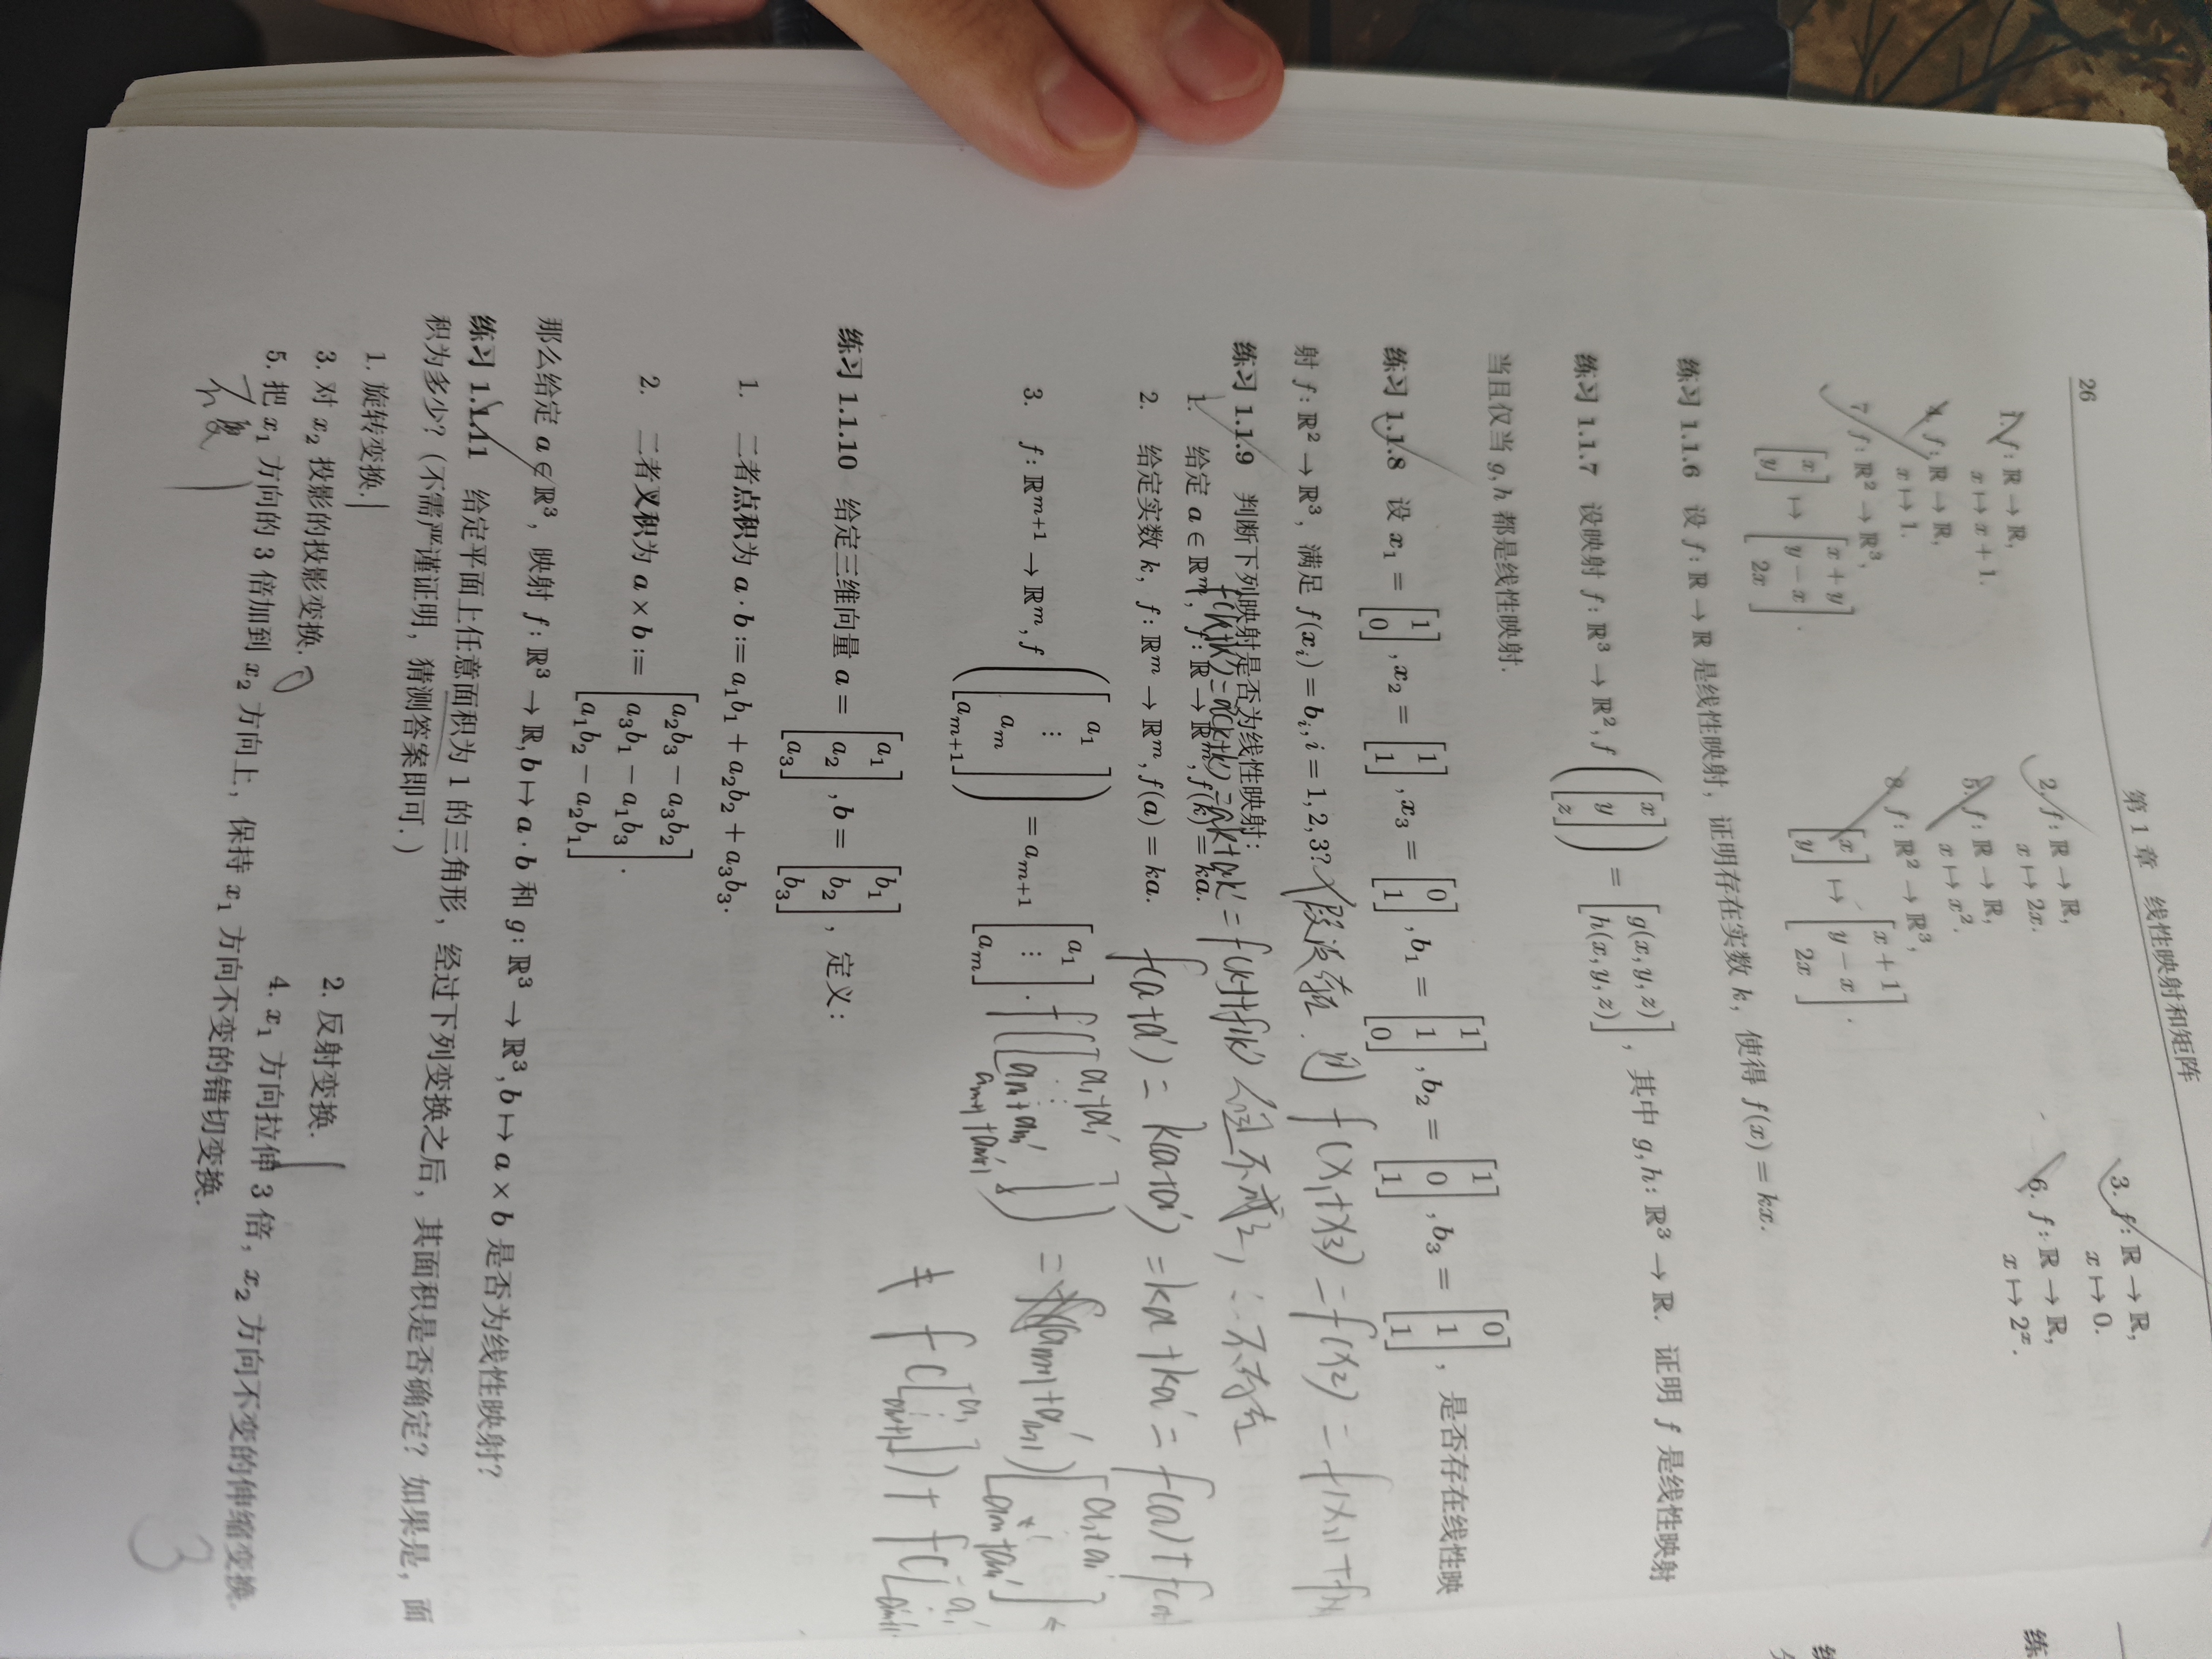 26
第 1 章 线性映射和矩阵
1. f: ℝ → ℝ,
x ↦ x + 1.
2. f: ℝ → ℝ,
x ↦ 2x.
3. f: ℝ → ℝ,
x ↦ 0.
4. f: ℝ → ℝ,
x ↦ 1.
5. f: ℝ → ℝ,
x ↦ x².
6. f: ℝ → ℝ,
x ↦ 2ˣ.
7. f: ℝ² → ℝ³,
[x y] ↦ [x + y  y − x  2x].
8. f: ℝ² → ℝ³,
[x y] ↦ [x + 1  y − x  2x].
练习 1.1.6 设 f: ℝ → ℝ 是线性映射, 证明存在实数 k, 使得 f(x) = kx.
练习 1.1.7 设映射 f: ℝ³ → ℝ², f([x y z]) = [g(x, y, z)  h(x, y, z)], 其中 g, h: ℝ³ → ℝ. 证明 f 是线性映射
当且仅当 g, h 都是线性映射.
练习 1.1.8 设 x₁ = [1 0], x₂ = [1 1], x₃ = [0 1], b₁ = [1 1 0], b₂ = [1 0 1], b₃ = [0 1 1], 是否存在线性映
射 f: ℝ² → ℝ³, 满足 f(xᵢ) = bᵢ, i = 1, 2, 3? 假设存在. 则 f(x₁+x₃) = f(x₂) = f(x₁)+f(x
练习 1.1.9 判断下列映射是否为线性映射: 但不成立, ∴不存在
1. 给定 a ∈ ℝᵐ, f: ℝ → ℝᵐ, f(k) = ka. f(k+k′) = a(k+k′) = ak+ak′ = f(k)+f(k′)
2. 给定实数 k, f: ℝᵐ → ℝᵐ, f(a) = ka. f(a+a′) = k(a+a′) = ka+ka′ = f(a)+f(a
3. f: ℝᵐ⁺¹ → ℝᵐ, f([a₁ ⋮ aₘ aₘ₊₁]) = aₘ₊₁ [a₁ ⋮ aₘ]. f([a₁+a₁′ ⋮ aₘ+aₘ′ aₘ₊₁+aₘ₊₁′]) = (aₘ₊₁+a′ₘ₊₁) [a₁+a₁′ ⋮ aₘ+aₘ′]
≠ f([a₁ ⋮ aₘ₊₁]) + f([a₁′ ⋮ aₘ₊₁′
练习 1.1.10 给定三维向量 a = [a₁ a₂ a₃], b = [b₁ b₂ b₃], 定义:
1. 二者点积为 a · b := a₁b₁ + a₂b₂ + a₃b₃.
2. 二者叉积为 a × b := [a₂b₃ − a₃b₂  a₃b₁ − a₁b₃  a₁b₂ − a₂b₁].
那么给定 a ∈ ℝ³, 映射 f: ℝ³ → ℝ, b ↦ a · b 和 g: ℝ³ → ℝ³, b ↦ a × b 是否为线性映射?
练习 1.1.11 给定平面上任意面积为 1 的三角形, 经过下列变换之后, 其面积是否确定? 如果是, 面
积为多少? (不需严谨证明, 猜测答案即可.)
1. 旋转变换. 1
2. 反射变换. 1
3. 对 x₂ 投影的投影变换. 0
4. x₁ 方向拉伸 3 倍, x₂ 方向不变的伸缩变换. 3
5. 把 x₁ 方向的 3 倍加到 x₂ 方向上, 保持 x₁ 方向不变的错切变换.
不变 1
练
练